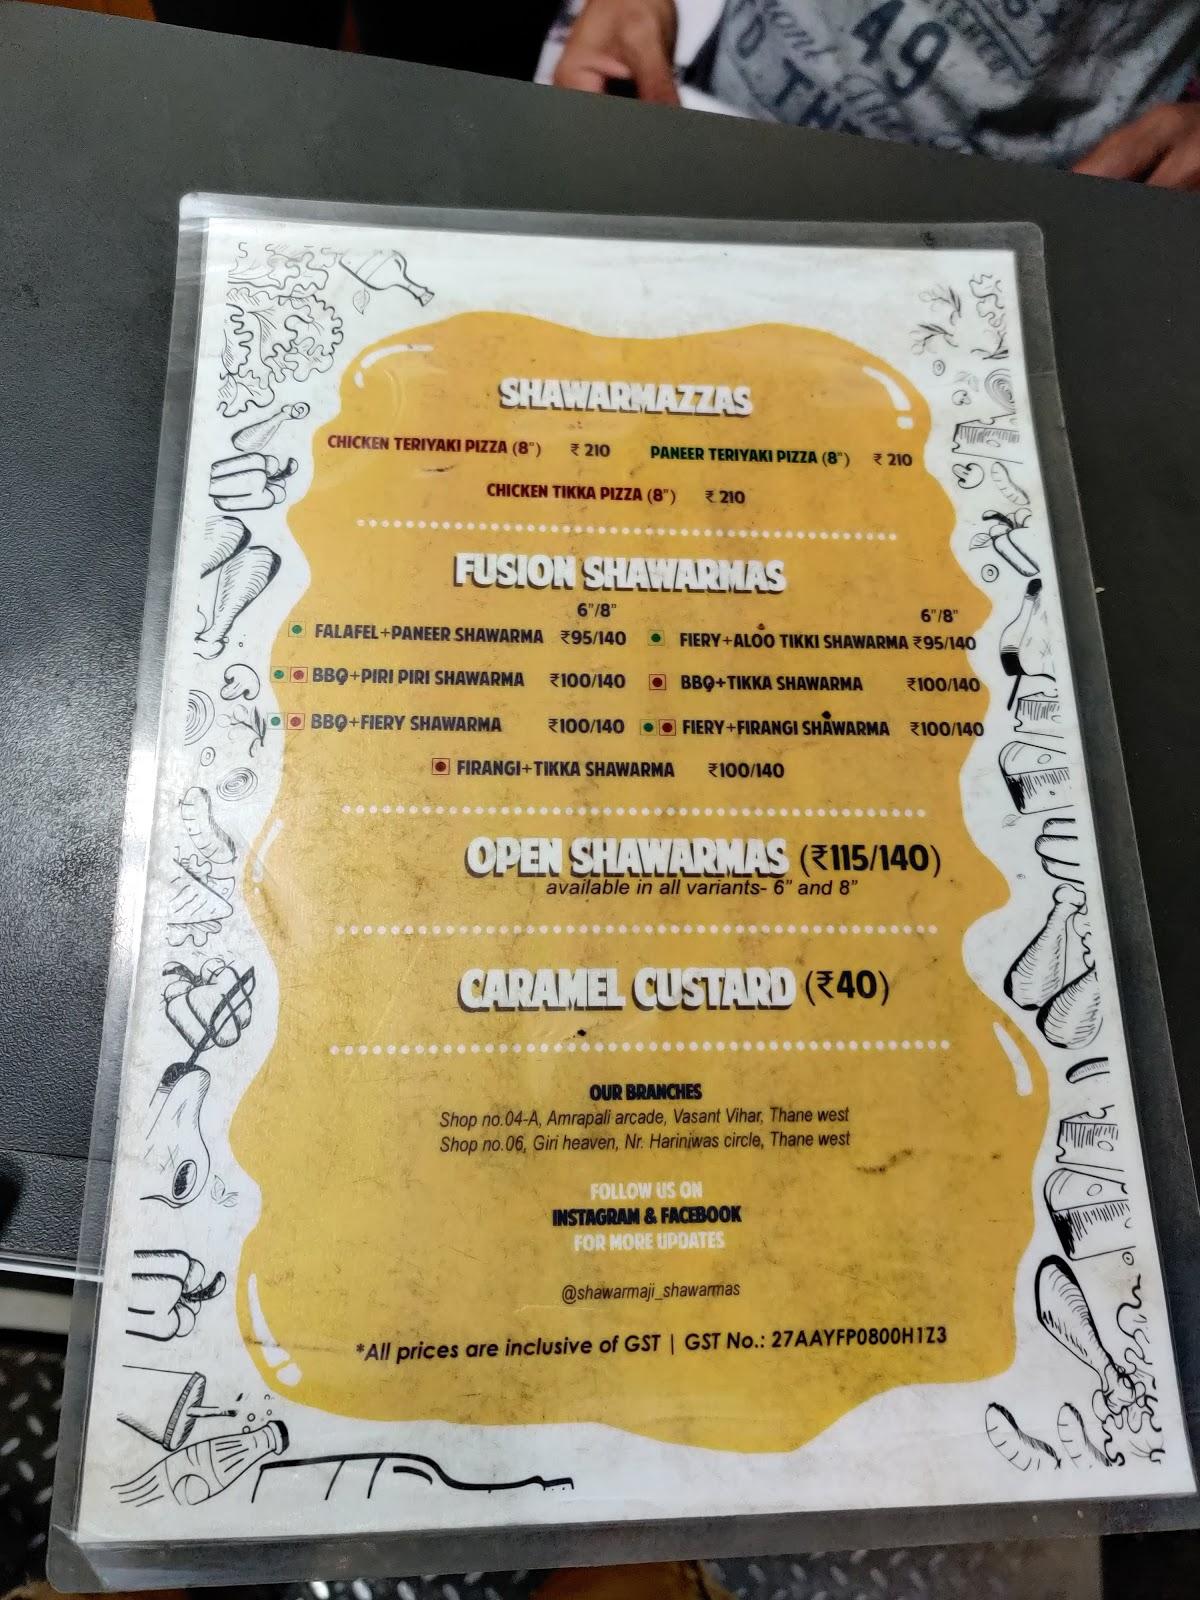 49
SHAWARMAZZAS
CHICKEN TERIYAKI PIZZA (8") ₹ 210 PANEER TERIYAKI PIZZA (8") ₹ 210
CHICKEN TIKKA PIZZA (8") ₹ 210
FUSION SHAWARMAS
6"/8" 6"/8"
FALAFEL+PANEER SHAWARMA ₹95/140 FIERY+ALOO TIKKI SHAWARMA ₹95/140
BBQ+PIRI PIRI SHAWARMA ₹100/140 BBQ+TIKKA SHAWARMA ₹100/140
BBQ+FIERY SHAWARMA ₹100/140 FIERY+FIRANGI SHAWARMA ₹100/140
FIRANGI+TIKKA SHAWARMA ₹100/140
OPEN SHAWARMAS (₹115/140)
available in all variants- 6" and 8"
CARAMEL CUSTARD (₹40)
OUR BRANCHES
Shop no.04-A, Amrapali arcade, Vasant Vihar, Thane west
Shop no.06, Giri heaven, Nr. Hariniwas circle, Thane west
FOLLOW US ON
INSTAGRAM & FACEBOOK
FOR MORE UPDATES
@shawarmaji_shawarmas
*All prices are inclusive of GST | GST No.: 27AAYFP0800H1Z3